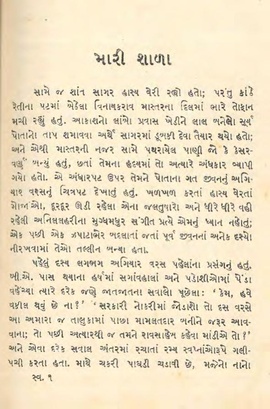 મારી શાળા
સામે જ શાંત સાગર હાસ્ય વેરી રહ્યો હતો; પરંતુ કાંઠે
રેતીના પટમાં બેઠેલા વિનાયકરાવ માસ્તરના દિલમાં ભારે તોફાન
મચી રહ્યું હતું. આકાશનો લાંબો પ્રવાસ ખેડીને લાલ બનેલો સૂર્ય
પોતાનો તાપ શમાવવા અર્થે સાગરમાં ડૂબકી દેવા તૈયાર થયો હતો;
અને એથી માસ્તરની નજર સામે પથરાયેલ પાણી જો કે કેસર-
વર્ણું બન્યું હતું, છતાં તેમના હૃદયમાં તો અત્યારે અંધકાર વ્યાપી
ગયો હતો. એ અંધારપટ ઉપર તેમને પોતાના ગત જીવનનો અગિ-
યાર વરસનું ચિત્રપટ દેખાતું હતું. ખળખળ કરતાં હાસ્ય વેરતાં
મોજાંઓ, દૂરદૂર ઊડી રહેલાં એ જલતુષારો અને ધીરે ધીરે વહી
રહેલી અનિલલહરીના મુગ્ધમધુર સંગીત પ્રત્યે એમનું ધ્યાન નહોતું;
એક પછી એક ઝપાટાબેર બદલાતાં જતાં પૂર્વ જીવનનાં અનેક દશ્યો
નીરખવામાં તેઓ તલ્લીન બન્યા હતા.
પહેલું દશ્ય લગભગ અગિયાર વરસ પહેલાંના પ્રસંગનું હતું.
બી.એ. પાસ થયાના હર્ષમાં સગાંવહાલાં અને પડોશીઓમાં પેંડા
વહેંચ્યા ત્યારે દરેક જણે જાતજાતના સવાલો પૂછેલા: ‘કેમ, હવે
વકીલ થવું છે ના?’ ‘સરકારી નોકરીમાં જોડાશો તો દસ વરસે
આ અમારા જ તાલુકામાં પાછા મામલતદાર બનીને જરૂર આવ-
વાના; તો પછી અત્યારથી જ તમને રાવસાહેબ કહેવા માંડીએ તો!’
અને એવા દરેક સવાલ અંતરમાં રચાતાં રમ્ય સ્વપ્નાંઓરૂપે ગલી-
પચી કરતો. માથે ચકરી પાઘડી ચડાવી છે, મજેનો નાનો
સ્વ. ૧